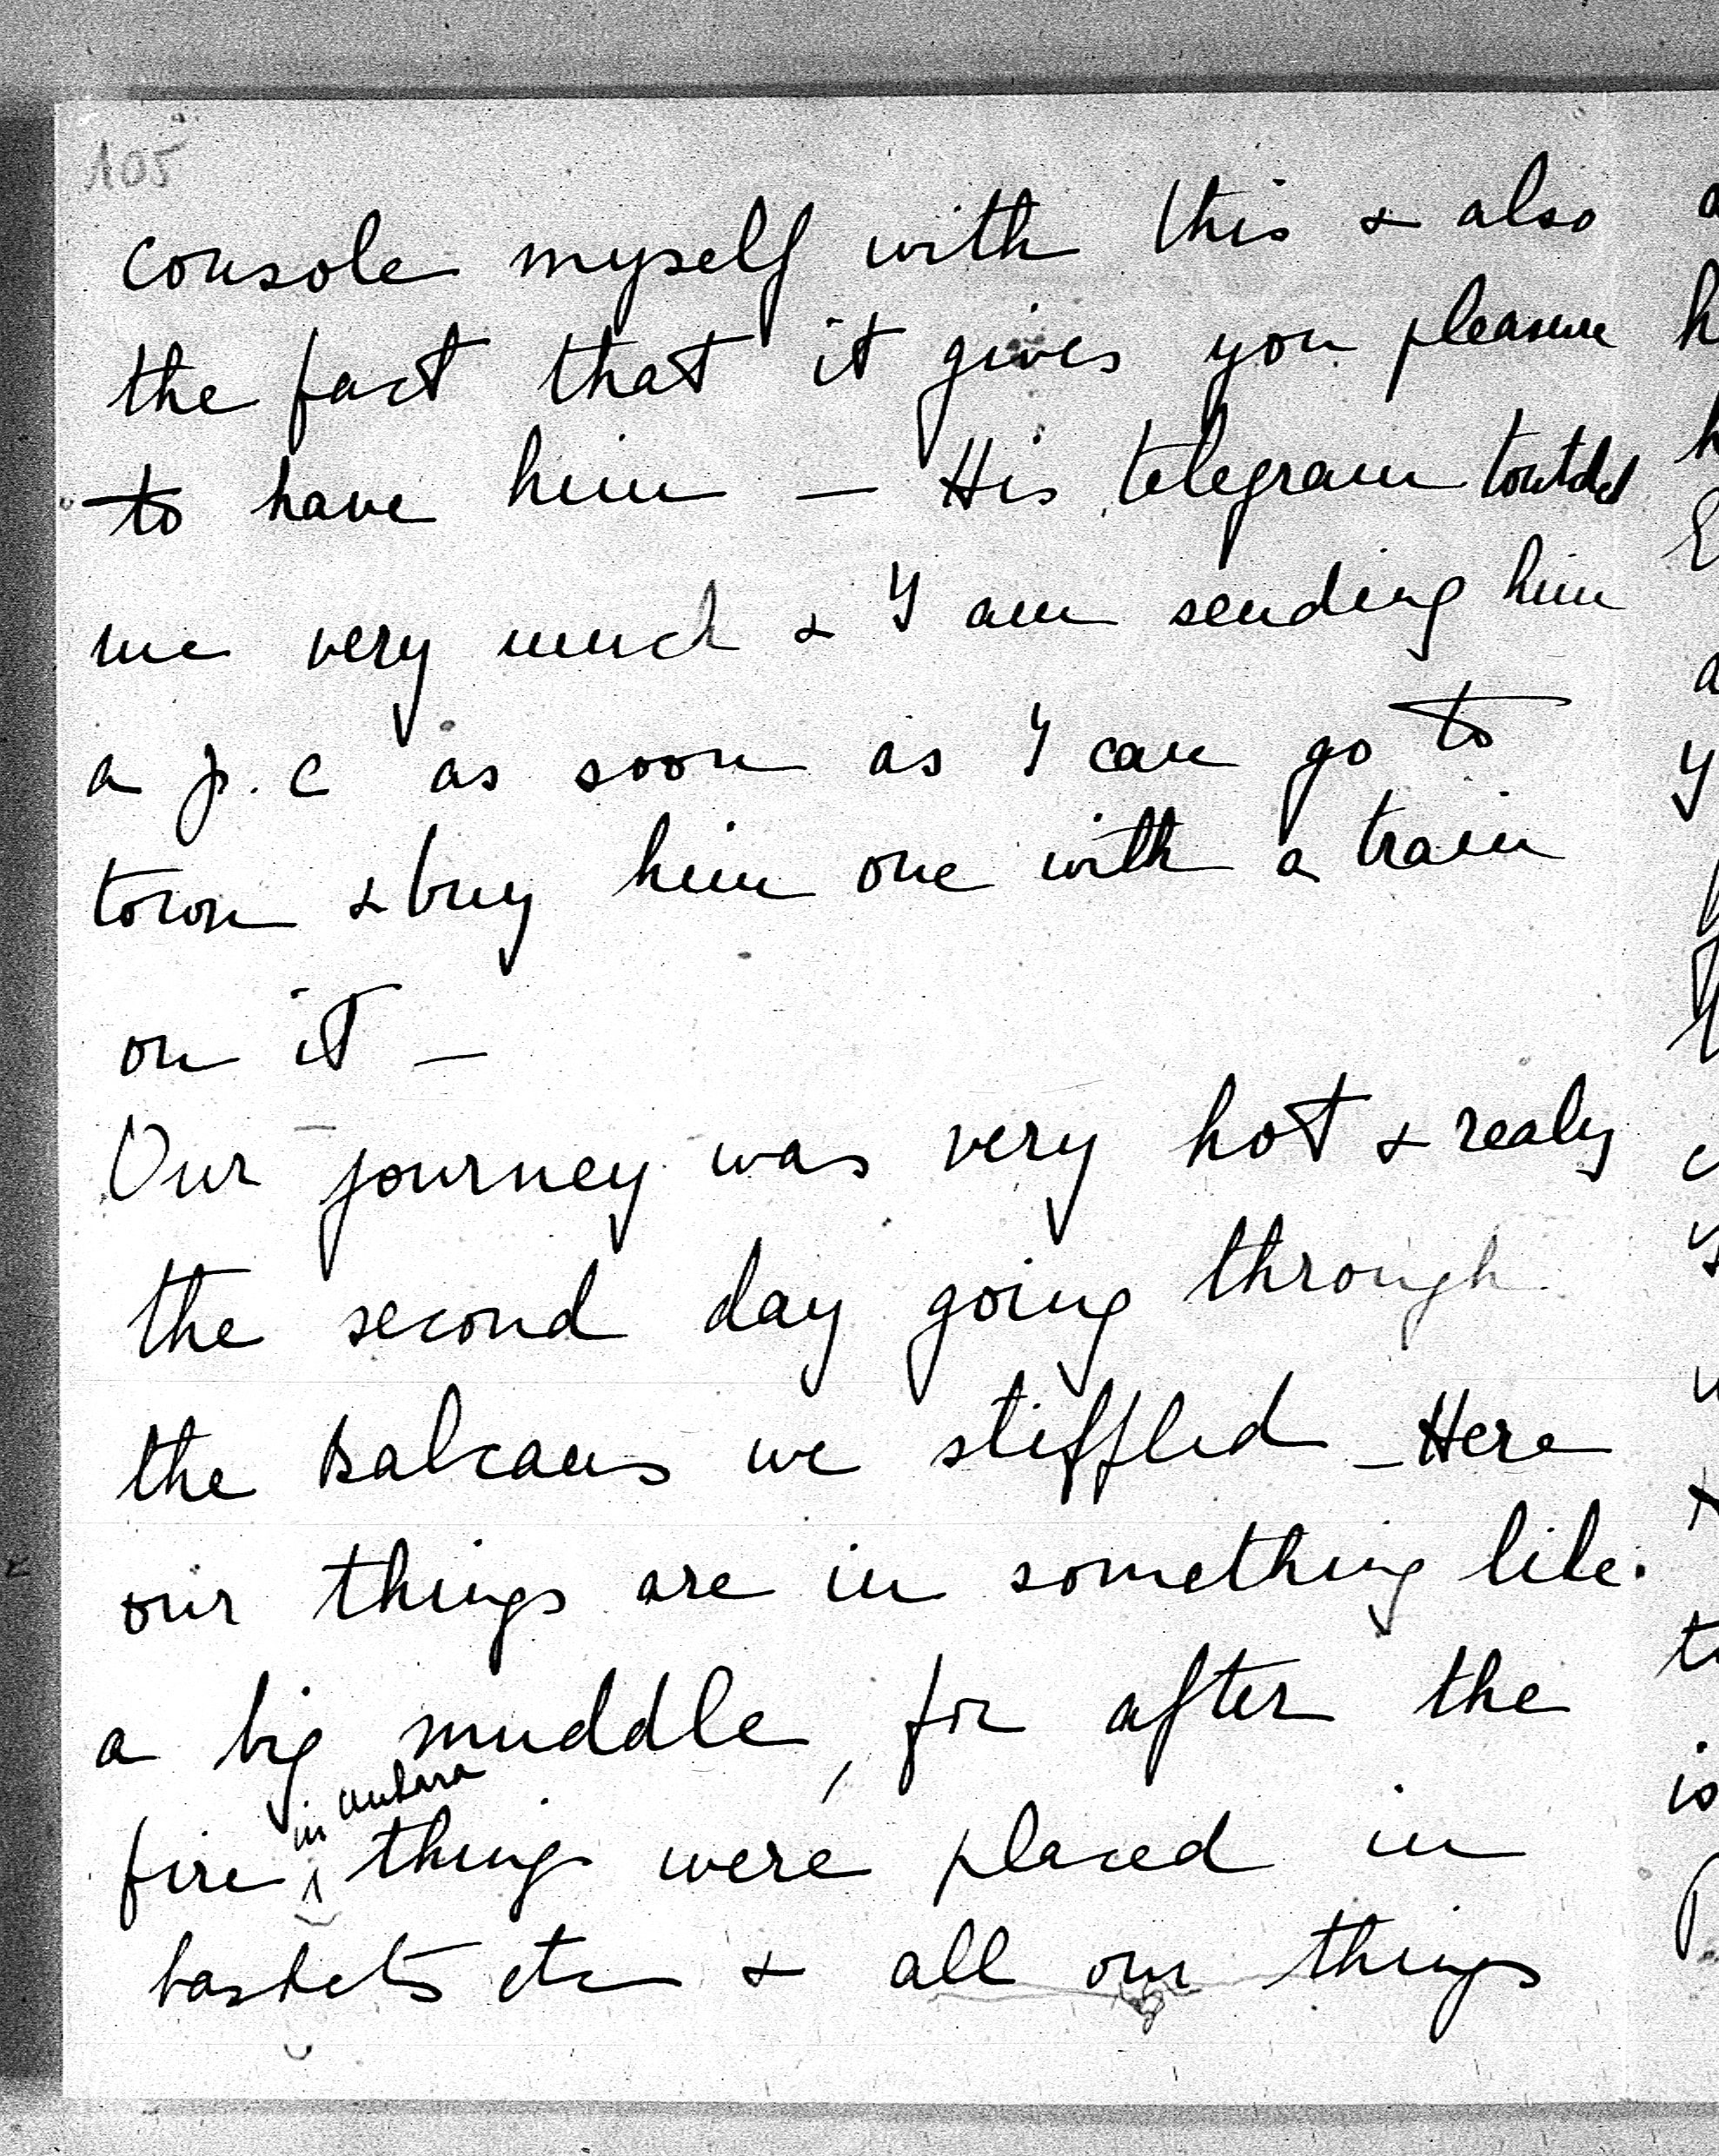 105
console myself with this & also
the fact that it gives you pleasure
to have him — His telegram touched
me very much & I am sending him
a p. c as soon as I can go to
town & buy him one with a train
on it —
Our journey was very hot & realy
the second day going through
the Balcans we stiffled — Here
our things are in something like
a big muddle, for after the
in
fire thing were placed in
baskets etc & all our things